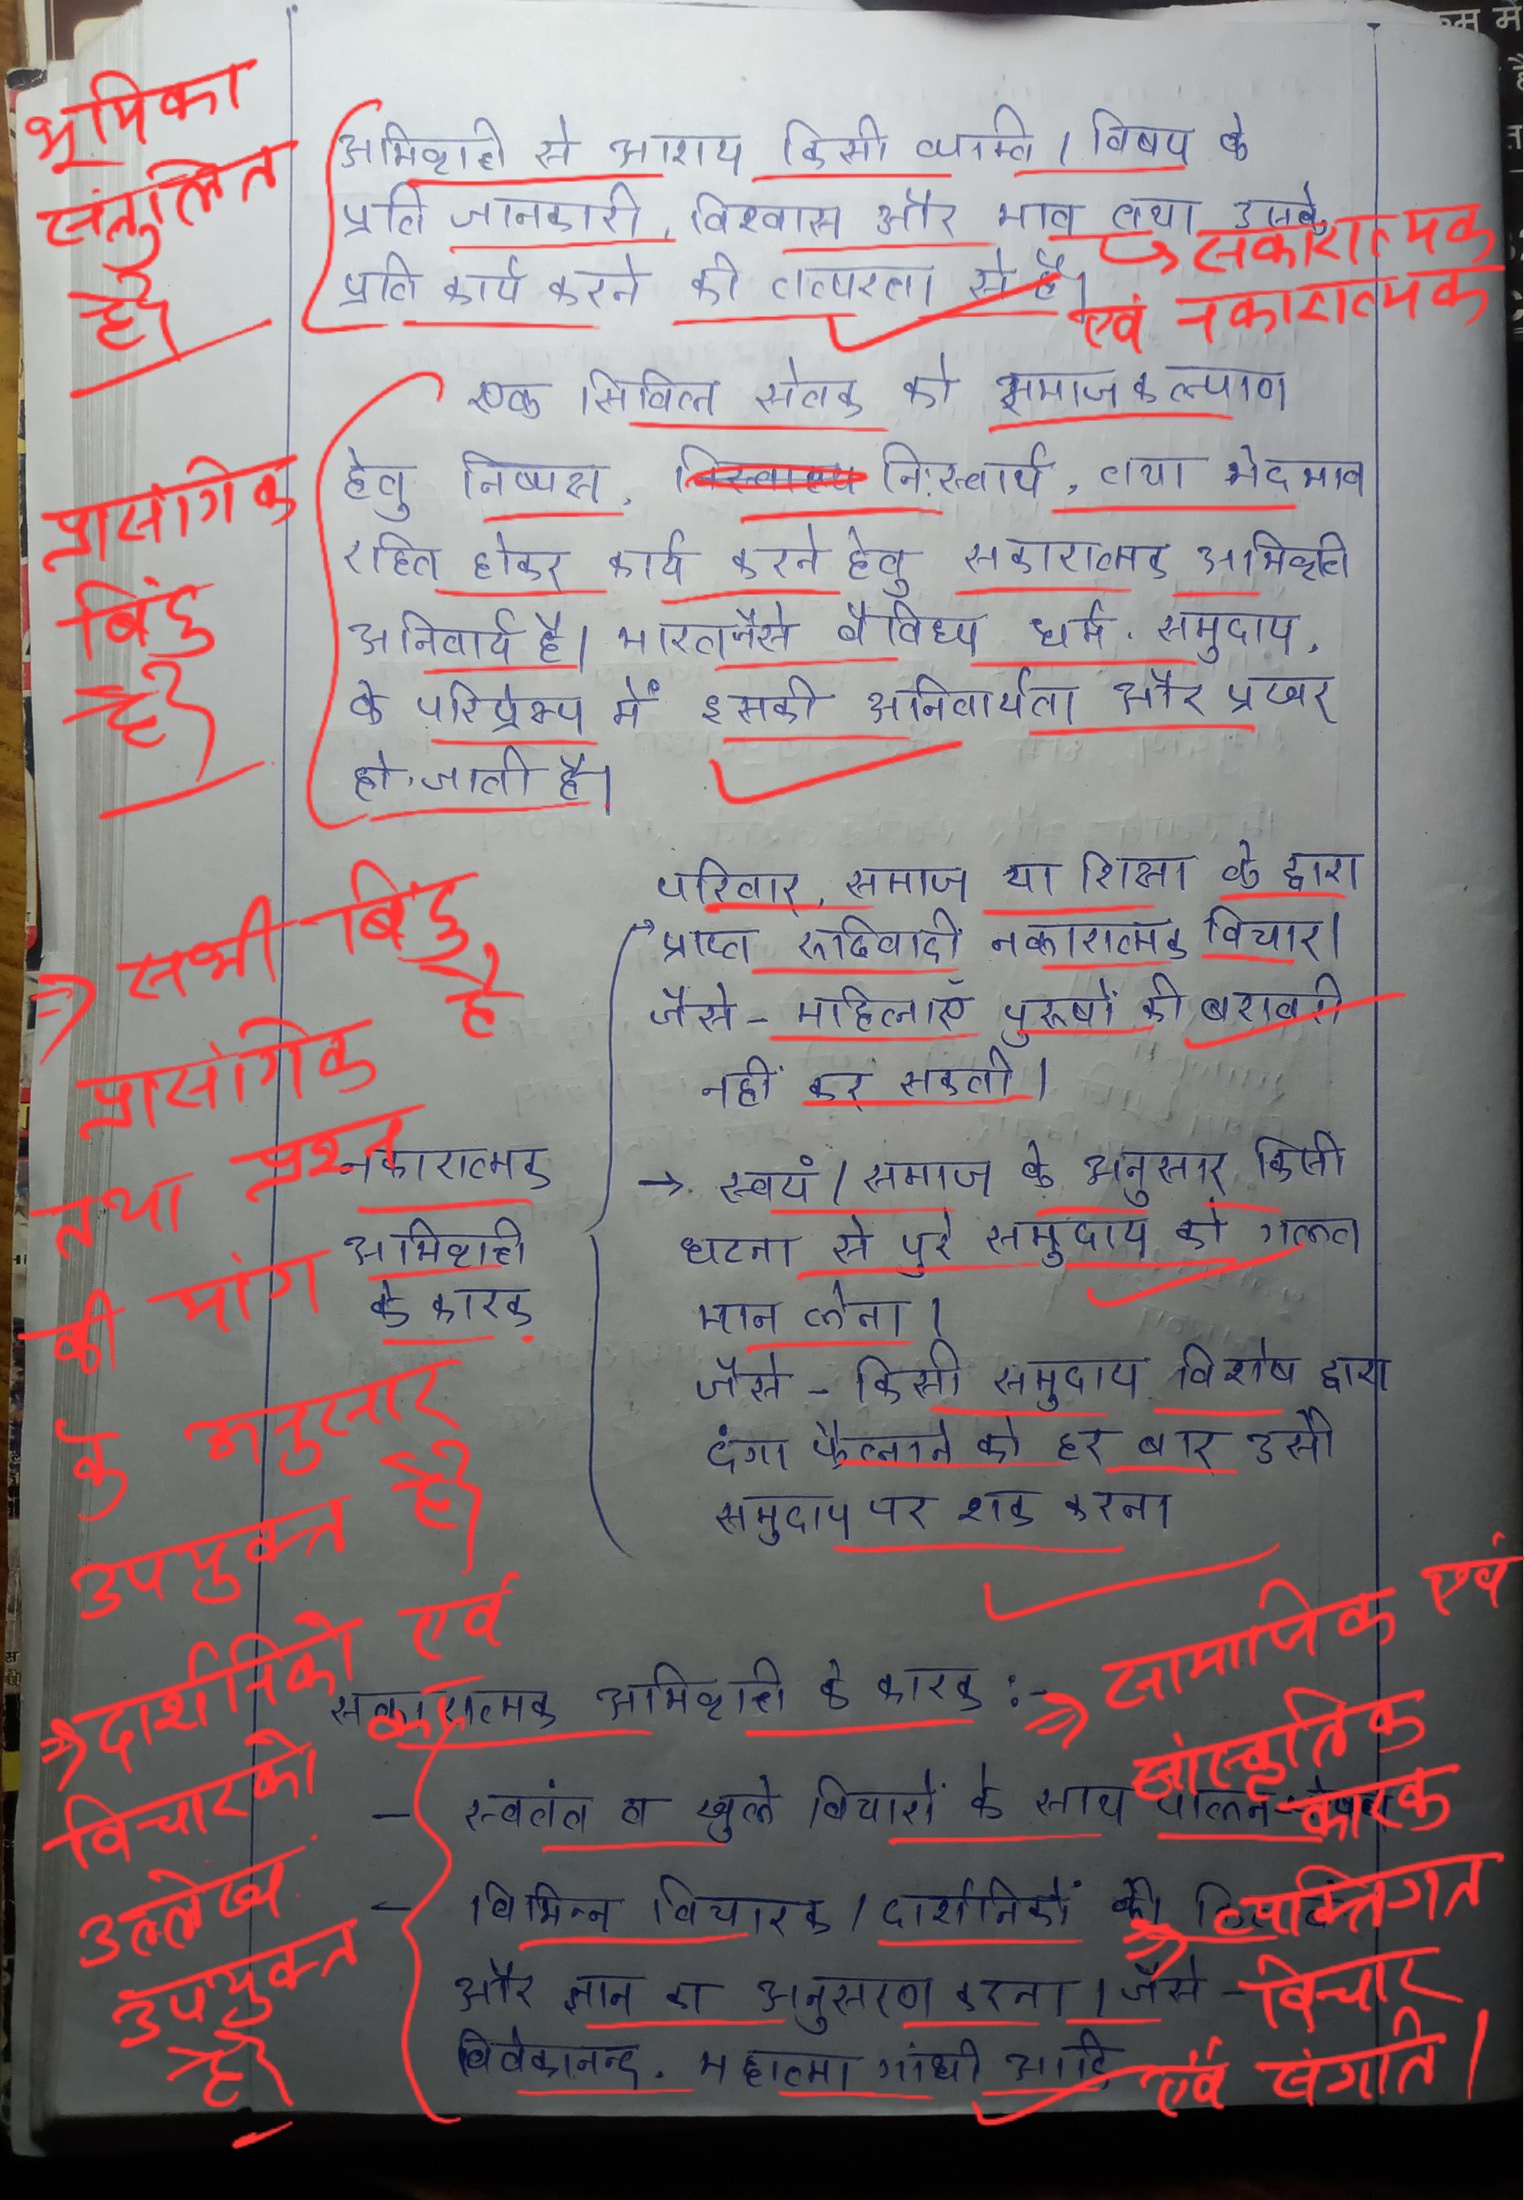 भूमिका
संतुलित
है।
अभिवृत्ति से आशय किसी व्यक्ति / विषय के
प्रति जानकारी, विश्वास और भाव तथा उसके
प्रति कार्य करने की तत्परता से है।
→ सकारात्मक
एवं नकारात्मक
एक सिविल सेवक को समाज कल्याण
हेतु निष्पक्ष, निःस्वार्थ, तथा भेदभाव
रहित होकर कार्य करने हेतु सकारात्मक अभिवृत्ति
अनिवार्य है। भारत जैसे वैविध्य धर्म, समुदाय,
के परिप्रेक्ष्य में इसकी अनिवार्यता और प्रखर
हो जाती है।
प्रासंगिक
बिंदु
है।
परिवार, समाज या शिक्षा के द्वारा
प्राप्त रूढिवादी नकारात्मक विचार।
जैसे - महिलाएँ पुरूषों की बराबरी
नहीं कर सकती।
नकारात्मक
अभिवृत्ति
के कारक
→ स्वयं / समाज के अनुसार किसी
घटना से पुरे समुदाय को गलत
मान लेना।
जैसे - किसी समुदाय विशेष द्वारा
दंगा फैलाने को हर बार उसी
समुदाय पर शक करना
⇒ सभी बिंदु
है
प्रासंगिक
तथा प्रश्न
की मांग
के अनुसार
उपयुक्त है।
सकारात्मक अभिवृत्ति के कारक :-
- स्वतंत्र व खुले विचारों के साथ पालन
- विभिन्न विचारक / दार्शनिकों की
और ज्ञान का अनुसरण करना। जैसे -
विवेकानन्द, महात्मा गांधी आदि
⇒ दार्शनिको एवं
विचारको का
उल्लेख
उपयुक्त
है।
⇒ सामाजिक एवं
सांस्कृतिक
कारक
⇒ व्यक्तिगत
विचार
एवं संगति।